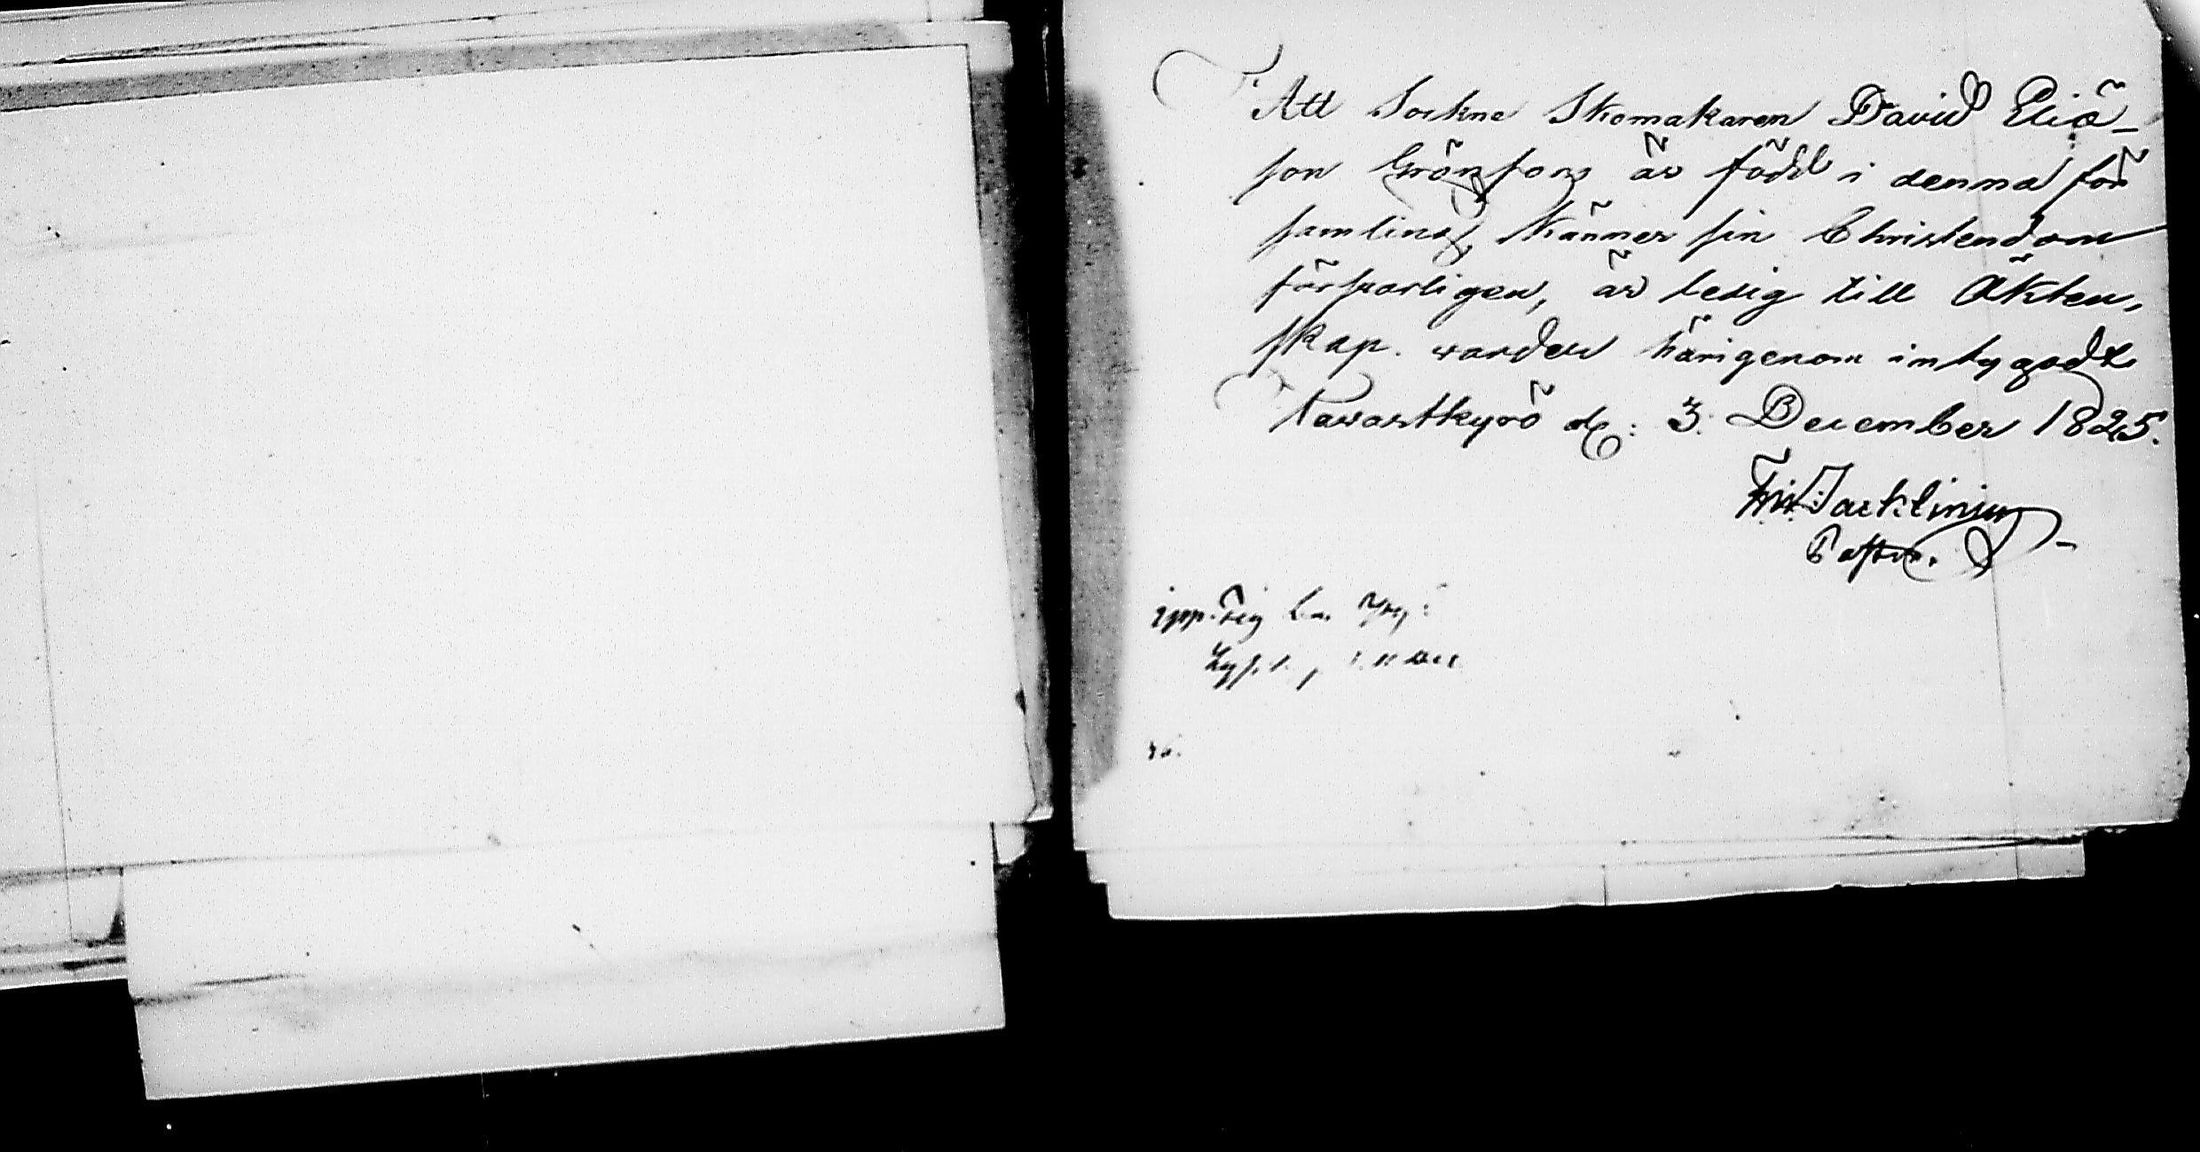 Att Sockne Skomakaren David Eliæ-
son Grönfors är född i denna för
samling, känner sin Christendom
försvarligen, är ledig till Äkten,
skap. warder härigenom intygadt.
Tavastkyrö d: 3. December 1825.
Jacklinius
Pastor.